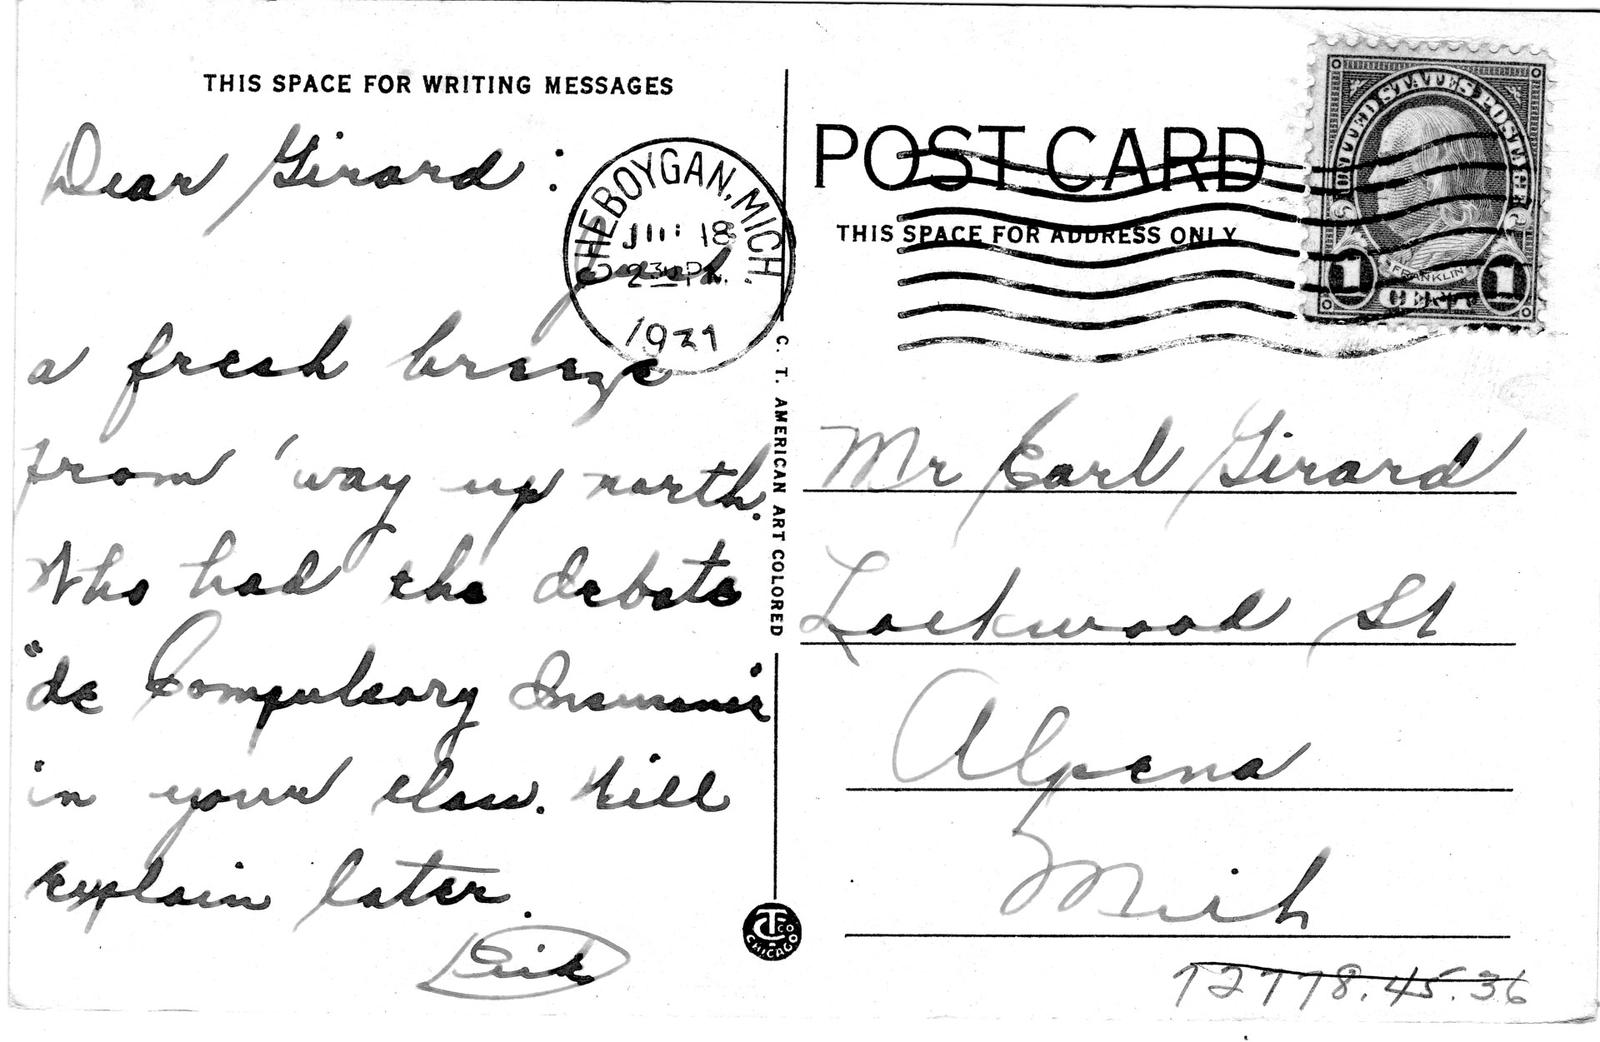 THIS SPACE FOR WRITING MESSAGES
Dear Girard :
a fresh breeze
from 'way up north.
Who had the debate
"de Compulsory Insurance
in your class. Will
explain later.
CHEBOYGAN, MICH.
18
2 30 PM
1931
C. T. AMERICAN ART COLORED
CT CO
CHICAGO
POST CARD
THIS SPACE FOR ADDRESS ONLY
UNITED STATES POSTAGE
FRANKLIN
1 CENT 1
Mr Earl Girard
Lockwood St
Alpena
Mich